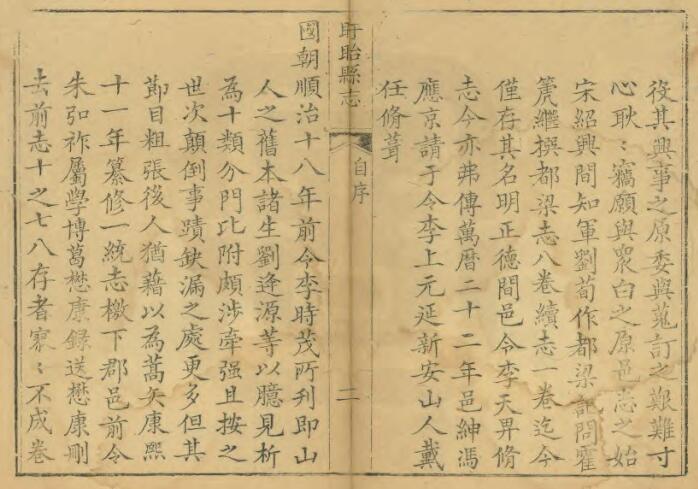 役其興事之原委與蒐訂之艱難寸
心耿〻竊願與衆白之原邑志之始
宋紹興間知軍劉荀作都梁記問霍
箎繼撰都梁志八卷續志一卷迄今
僅存其名明正德間邑令李天畀脩
志今亦弗傳萬曆二十二年邑紳馮
應京請于令李上元延新安山人戴
任脩葺
盱眙縣志
自序
二
國朝順治十八年前令李時茂所刊即山
人之舊本諸生劉逢源等以臆見析
為十類分門比附頗涉牽强且按之
世次顛倒事蹟缺漏之處更多但其
節目粗張後人猶藉以為蒿矢康熙
十一年纂修一統志檄下郡邑前令
朱弘祚屬學博葛懋康録送懋康刪
去前志十之七八存者寥〻不成卷